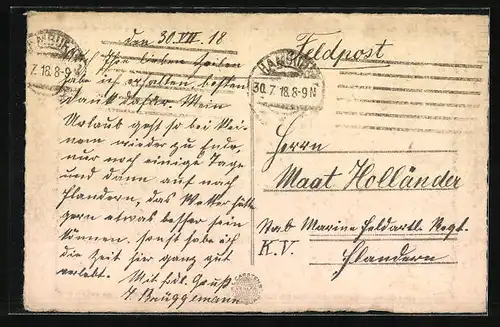 den 30.VII.18
Auch Ihre lieben Zeilen
habe ich erhalten besten
Dank dafür. Mein
Urlaub geht so bei klei-
nem wieder zu Ende,
nur noch einige Tage
und dann auf nach
Flandern, das Wetter hätte
gern etwas besser sein
können, sonst habe ich
die Zeit hier ganz gut
verlebt.
Mit frdl. Gruß
Brüggemann
HAMBURG
7.18.8-9N
HAMBURG
30.7.18.8-9N
Feldpost
Herrn
Maat Holländer
Stab Marine Feldartl. Regt.
K.V.
Flandern